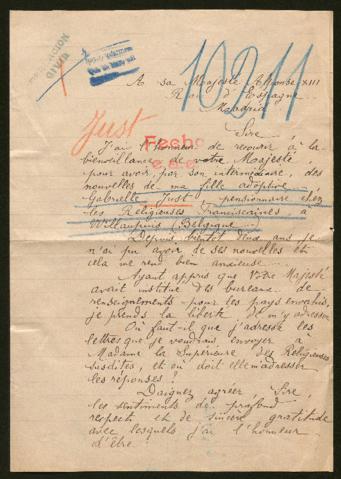 10211
A sa Majesté Alfonse XIII
Roi d'Espagne
Madrid
Just
Fecho
Sire,
J'ai l'honneur de recourir à la
bienveillance de votre Majesté,
pour avoir, par son intermédiaire, des
nouvelles de ma fille adoptive
Gabrielle Just, pensionnaire chez
les Religieuses Franciscaines à
(Belgique
Depuis bientôt deux ans je
n'ai pu avoir de ses nouvelles et
cela me rend bien anxieuse.
Ayant appris que Votre Majesté
avait institué des bureaux de
renseignements pour les pays envahis,
je prends la liberté de m'y adresser
Où faut-il que j'adresse les
lettres que je voudrais envoyer à
Madame la Supérieure des Religieuses
susdites, et où doit elle m'adresser
les réponses?
Daignez agréer Sire,
les sentiments de profond
respect et de sincère gratitude
avec lesquels j'ai l'honneur
d'être